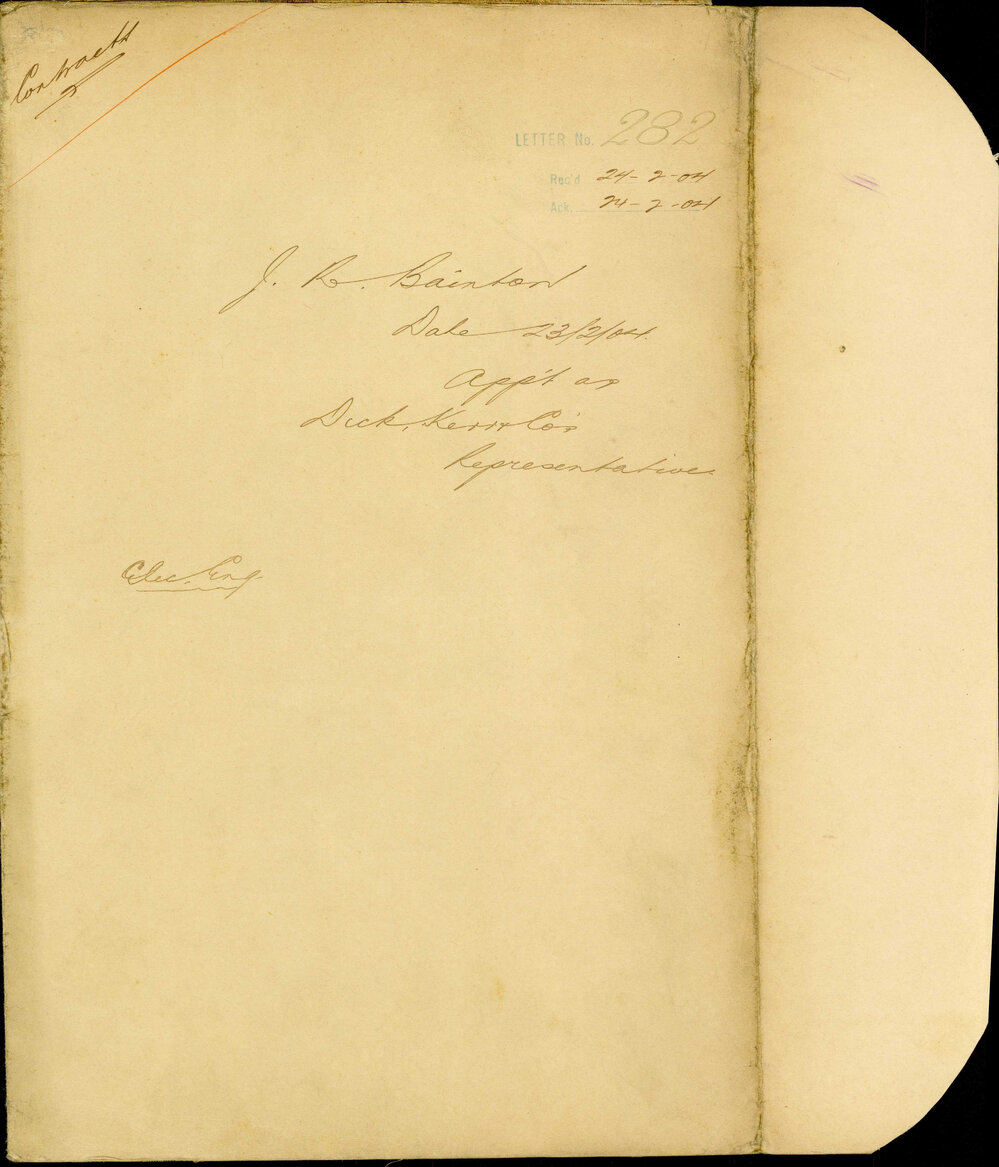 Contracts
LETTER No. 282
Rec'd 24-2-04
Ack. 24-2-04
J. R. Bainton
Date 23/2/04.
App't as
Dick, Kerr & Co's
Representative
Elec. Eng.